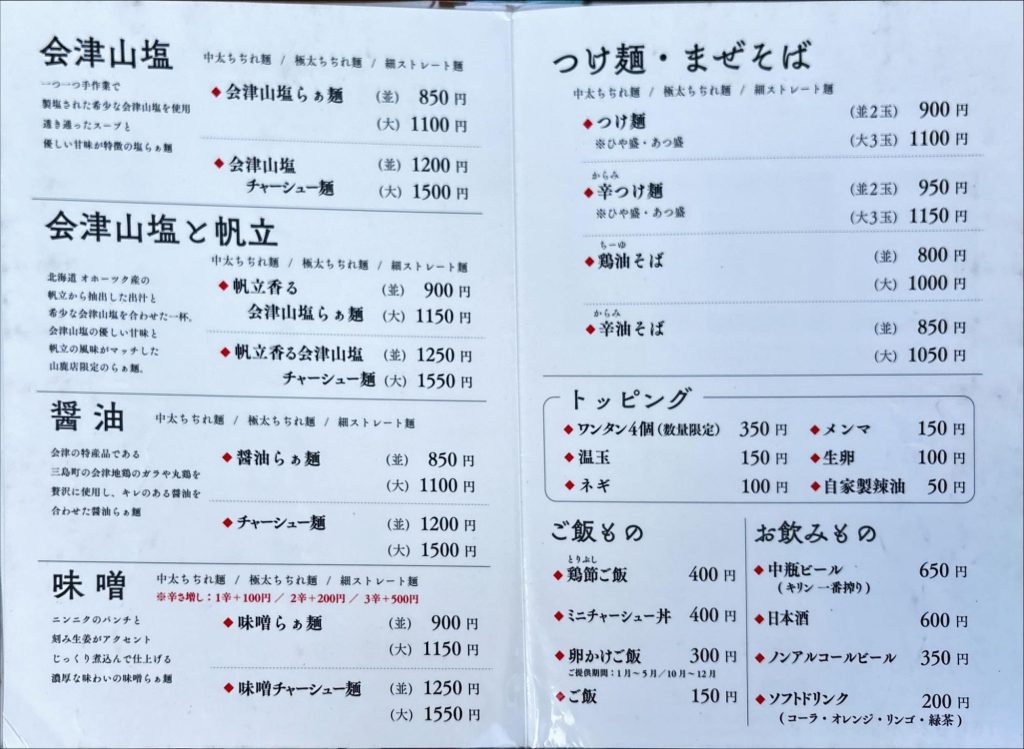 会津山塩
中太ちぢれ麺 / 極太ちぢれ麺 / 細ストレート麺
一つ一つ手作業で
製塩された希少な会津山塩を使用
透き通ったスープと
優しい甘味が特徴の塩らぁ麺
◆会津山塩らぁ麺 (並) 850円
(大) 1100円
◆会津山塩 (並) 1200円
チャーシュー麺 (大) 1500円
会津山塩と帆立
中太ちぢれ麺 / 極太ちぢれ麺 / 細ストレート麺
北海道 オホーツク産の
帆立から抽出した出汁と
希少な会津山塩を合わせた一杯。
会津山塩の優しい甘味と
帆立の風味がマッチした
山鹿店限定のらぁ麺。
◆帆立香る (並) 900円
会津山塩らぁ麺 (大) 1150円
◆帆立香る会津山塩 (並) 1250円
チャーシュー麺 (大) 1550円
醤油
中太ちぢれ麺 / 極太ちぢれ麺 / 細ストレート麺
会津の特産品である
三島町の会津地鶏のガラや丸鶏を
贅沢に使用し、キレのある醤油を
合わせた醤油らぁ麺
◆醤油らぁ麺 (並) 850円
(大) 1100円
◆チャーシュー麺 (並) 1200円
(大) 1500円
味噌
中太ちぢれ麺 / 極太ちぢれ麺 / 細ストレート麺
※辛さ増し：1辛+100円 / 2辛+200円 / 3辛+500円
ニンニクのパンチと
刻み生姜がアクセント
じっくり煮込んで仕上げる
濃厚な味わいの味噌らぁ麺
◆味噌らぁ麺 (並) 900円
(大) 1150円
◆味噌チャーシュー麺 (並) 1250円
(大) 1550円
つけ麺・まぜそば
中太ちぢれ麺 / 極太ちぢれ麺 / 細ストレート麺
◆つけ麺 (並2玉) 900円
※ひや盛・あつ盛 (大3玉) 1100円
からみ
◆辛つけ麺 (並2玉) 950円
※ひや盛・あつ盛 (大3玉) 1150円
ちーゆ
◆鶏油そば (並) 800円
(大) 1000円
からみ
◆辛油そば (並) 850円
(大) 1050円
トッピング
◆ワンタン4個(数量限定) 350円 ◆メンマ 150円
◆温玉 150円 ◆生卵 100円
◆ネギ 100円 ◆自家製辣油 50円
ご飯もの
とりぶし
◆鶏節ご飯 400円
◆ミニチャーシュー丼 400円
◆卵かけご飯 300円
ご提供期間：1月～5月／10月～12月
◆ご飯 150円
お飲みもの
◆中瓶ビール 650円
(キリン 一番搾り)
◆日本酒 600円
◆ノンアルコールビール 350円
◆ソフトドリンク 200円
(コーラ・オレンジ・リンゴ・緑茶)